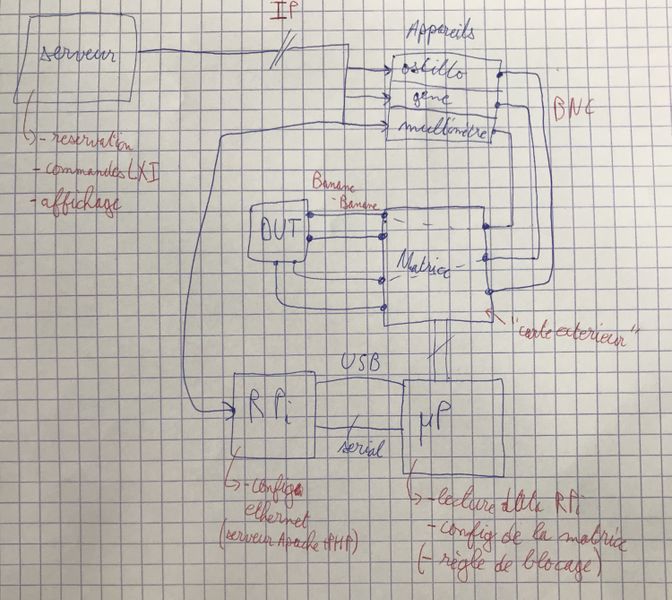 IP
serveur
Appareils
oscillo
géné
multimètre
BNC
- reservation
- commandes LXI
- affichage
Banane
- Banane
DUT
Matrice
"carte exterieur"
USB
RPi
µP
serial
- config
ethernet
(serveur Apache + PHP)
- lecture data RPi
- config de la matrice
(- règle de blocage)